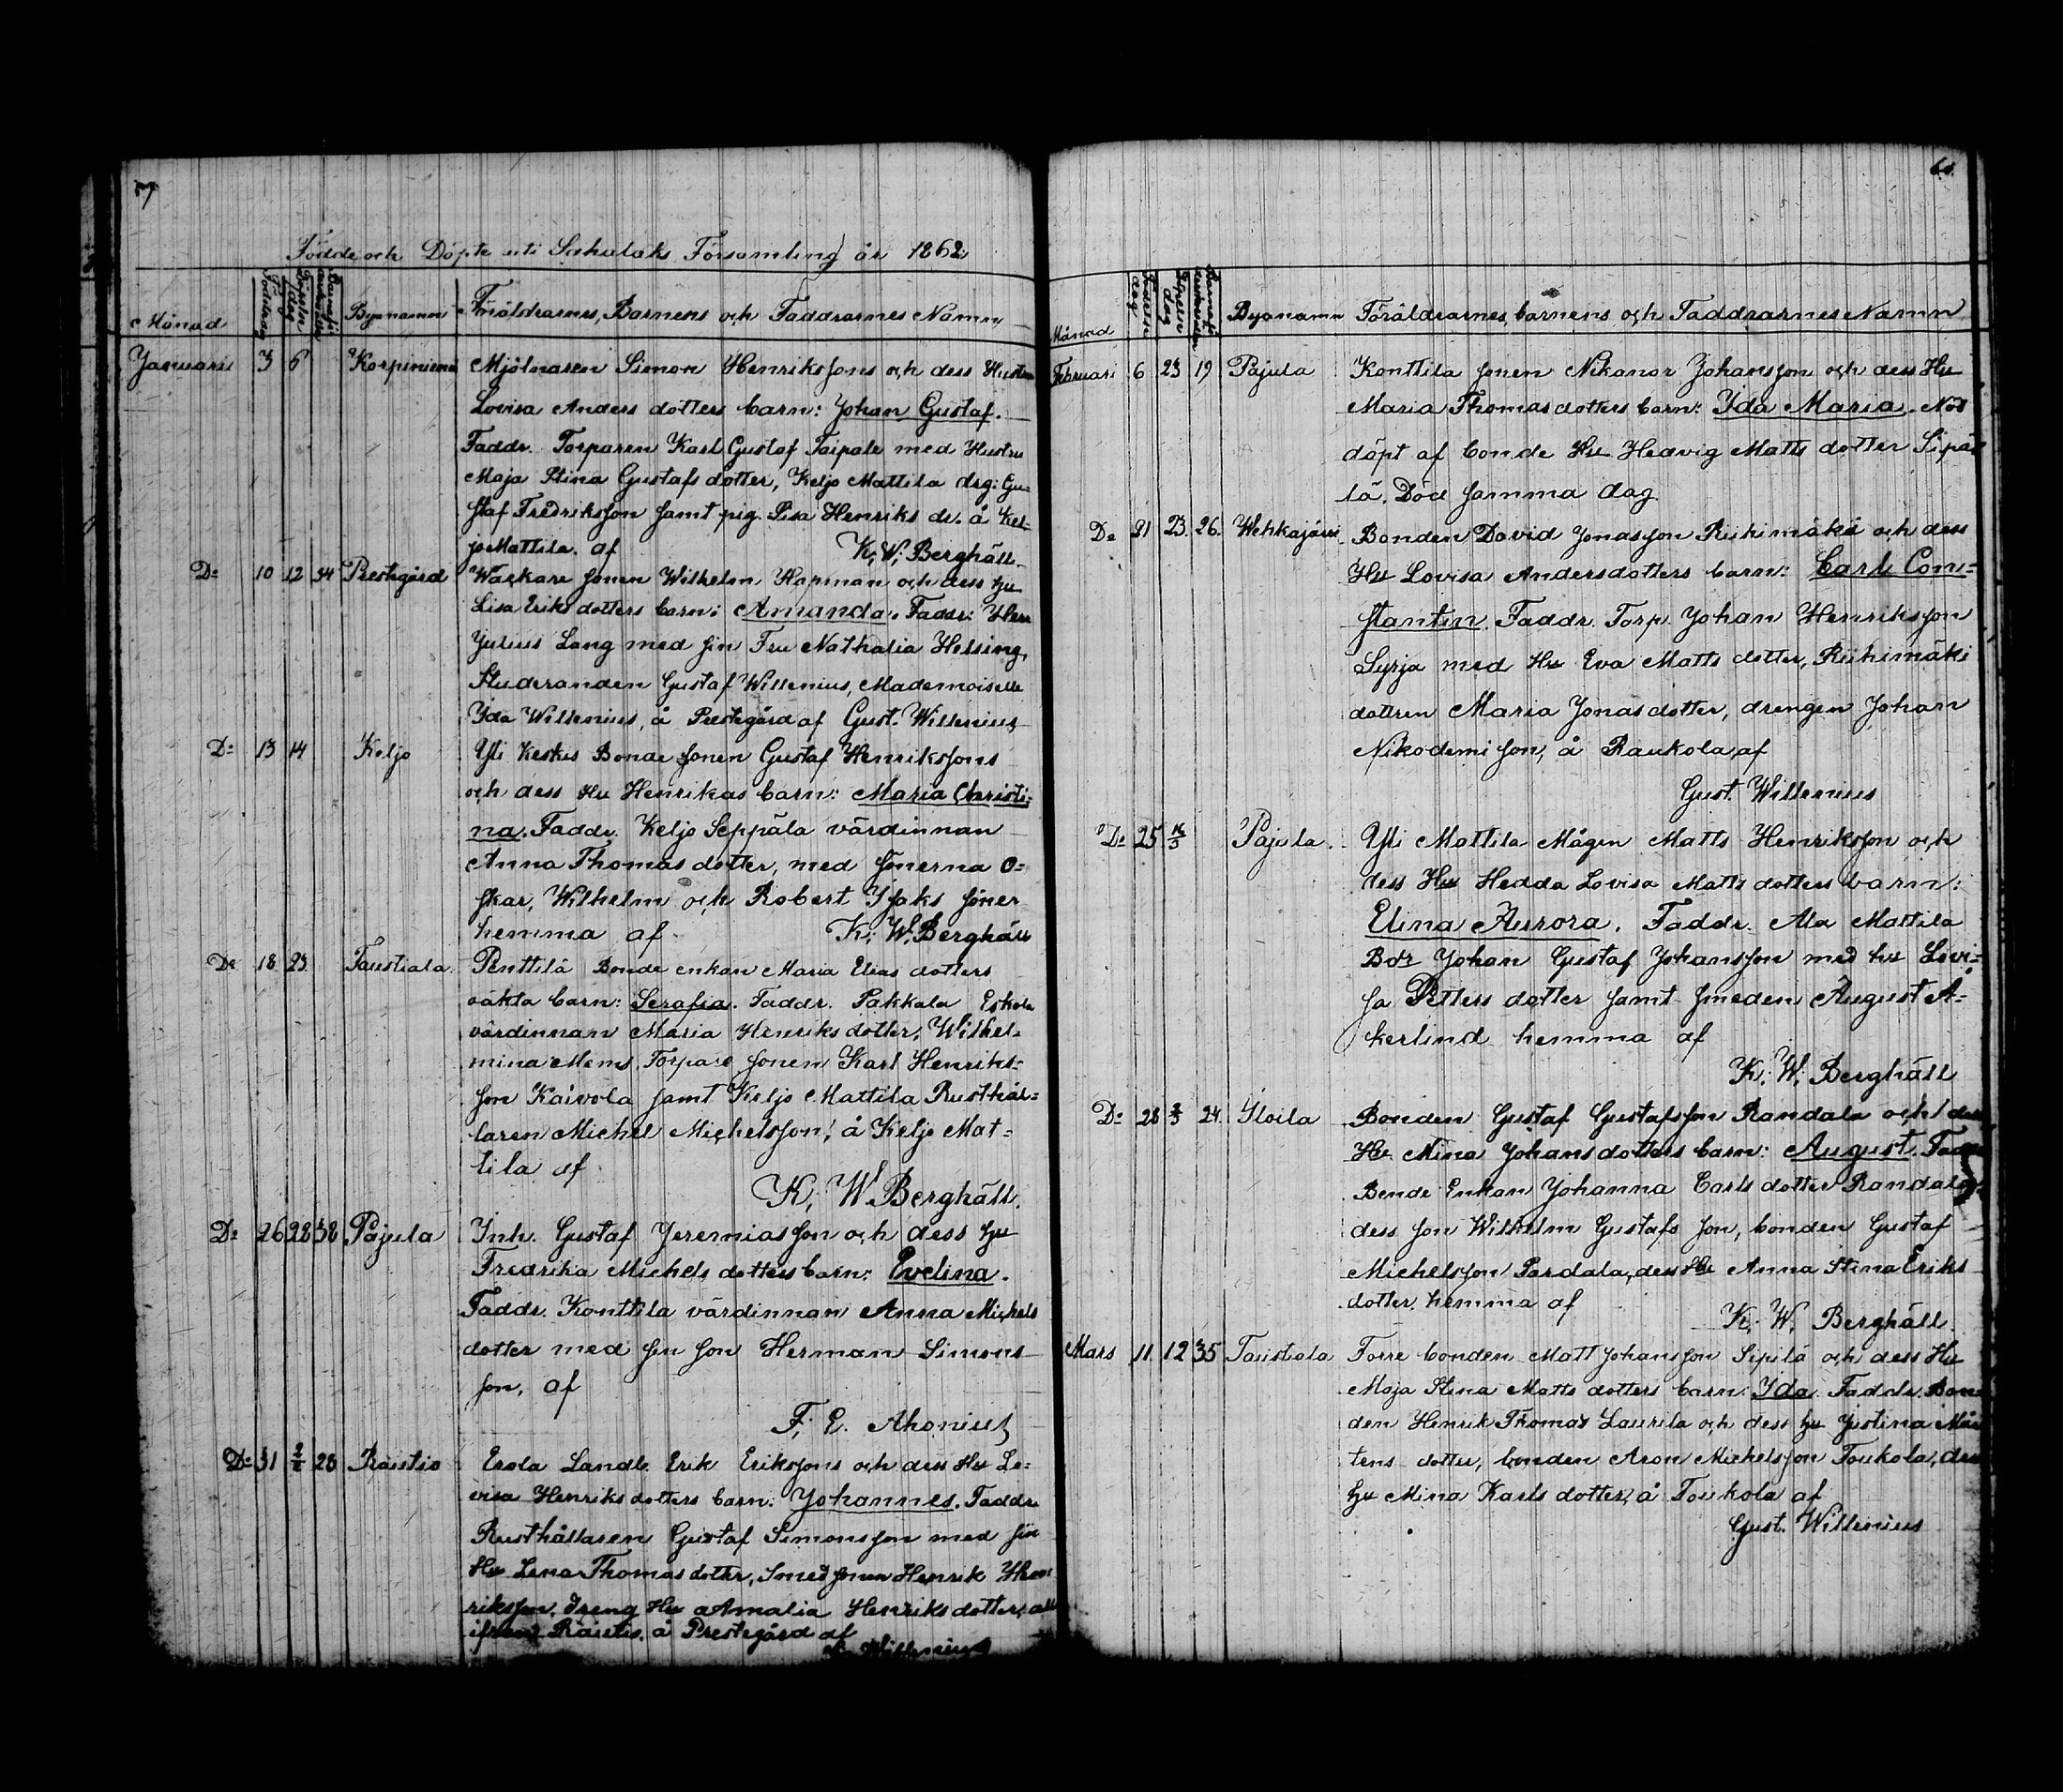 Födde och Döpte uti Sahalaks Församling år 1862
Månad Födelsedag Döpelse dag Byanamn Föräldrarnes, Barnens och Faddrarnes Namn
Januari 3 6 Korpiniemi Mjölnaren Simon Henrikssons och dess Hustru
Lovisa Anders dotters barn: Johan Gustaf.
Faddr. Torparen Karl Gustaf Taipale med Hustru
Maja Stina Gustafs dotter, Keljo Mattila drg: Gu-
staf Fredriksson samt pig. Lisa Henriks dr. å Kel-
jo Mattila. af K. W. Berghäll
D:o 10 12 34 Prestegård Wäckare sonen Wilhelm Hapman och dess hu
Lisa Eriks dotters barn: Amanda. Faddr: Herr
Julius Lang med sin Fru Nathalia Helsing,
Studeranden Gustaf Willenius, Mademoiselle
Ida Willenius, å Prestegård af Gust. Willenius
D:o 13 14 Keljo Yli Keskus Bonde sonen Gustaf Henrikssons
och dess Hu Henrikas barn: Maria Christi-
na. Faddr. Keljo Seppäla värdinnan
Anna Thomas dotter, med sönerna O-
skar, Wilhelm och Robert Isaks söner
hemma af K. W. Berghäll
D:o 18 23 Taustiala Penttilä Bonde enkan Maria Elias dotters
oäkta barn: Serafia. Faddr. Pakkala Eskola
värdinnan Maria Henriks dotter, Wilhel-
mina Mems, Torpare sonen Karl Henriks-
son Kaivola samt Keljo Mattila Rusthål-
laren Michel Michelsson, å Keljo Mat-
tila af
K. W. Berghäll.
D:o 26 28 38 Pajula Inh. Gustaf Jeremiasson och dess hu
Fredrika Michels dotters barn: Evelina.
Faddr. Konttila värdinnan Anna Michels
dotter med sin son Herman Simons
son, af
F. E. Ahonius
D:o 31 2/2 28 Raistio Erola Landb. Erik Erikssons och dess Hu Lo-
visa Henriks dotters barn: Johannes. Faddr
Rusthållaren Gustaf Simonsson med sin
Hu Lena Thomas dotter, Smed sonen Henrik Hen-
riksson, dreng Hu Amalia Henriks dotter, all
ifrån Raistio. å Prestegård af
Willenius
Månad Födelse dag Döpelse dag Byanamn Föräldrarnes, barnens och Faddrarnes Namn
Februari 6 23 19 Pajula Konttila sonen Nikanor Johansson och dess Hu
Maria Thomas dotters barn: Ida Maria. Nöd
döpt af bonde Hu Hedvig Matts dotter Sipi
lä. Död samma dag.
D:o 21 23. 26. Wehkajärvi Bonden David Jonasson Riihimäki och dess
Hu Lovisa Andersdotters barn: Carl Con-
stantin. Faddr. Torp. Johan Henriksson
Syrja med Hu Eva Matts dotter, Riihimäki
dottren Maria Jonas dotter, drengen Johan
Nikodemi son, å Raukola, af
Gust. Willenius
D:o 25 Pajula. Yli Mattila Mågen Matts Henriksson och
dess Hu Hedda Lovisa Matts dotters barn:
Elina Aurora. Faddr. Ala Mattila
Bdn Johan Gustaf Johansson med hu Lovi-
sa Petters dotter samt smeden August Å-
kerlind hemma af
K. W. Berghäll
D:o 28 2/3 24. Iloila Bonden Gustaf Gustafsson Randala och dess
Hu. Mina Johans dotters barn: August. Faddr
Bonde Enkan Johanna Carls dotter Randala
dess son Wilhelm Gustafs son, bonden Gustaf
Michelsson Pardala, dess Hu Anna Stina Eriks
dotter, hemma af
K. W. Berghäll.
Mars 11 12 35 Taustiala Torre bonden Matt Johansson Sipilä och dess Hu
Maja Stina Matts dotters barn: Ida. Faddr. Bon-
den Henrik Thomas Laurila och dess hu Justina Mår
tens dotter, bonden Aron Michelsson Toukola, dess
hu Mina Karls dotter, å Toukola af
Gust. Willenius